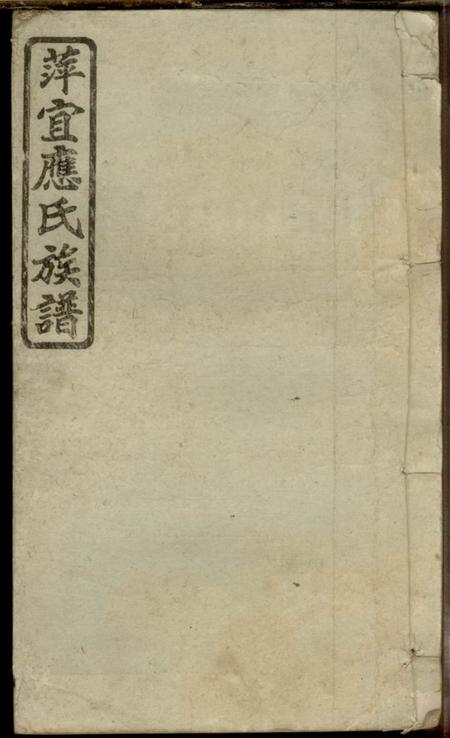 萍宜應氏族譜